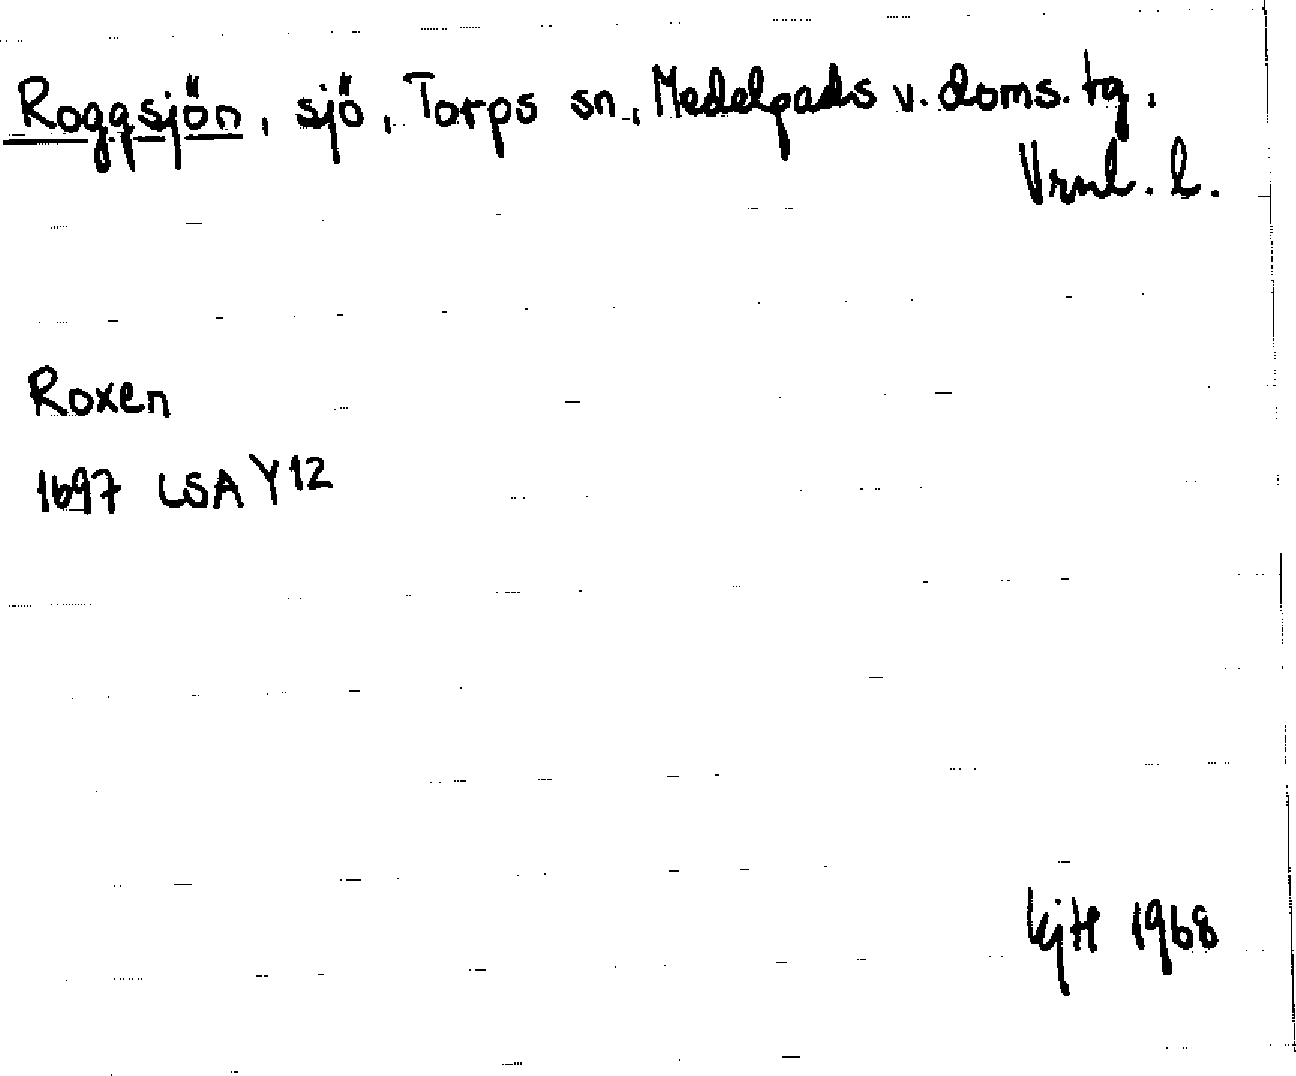 Roggsjön, sjö, Torps sn, Medelpads v. doms. tg,
Vrnl. l.
Roxen
1697 LSA Y12
1968